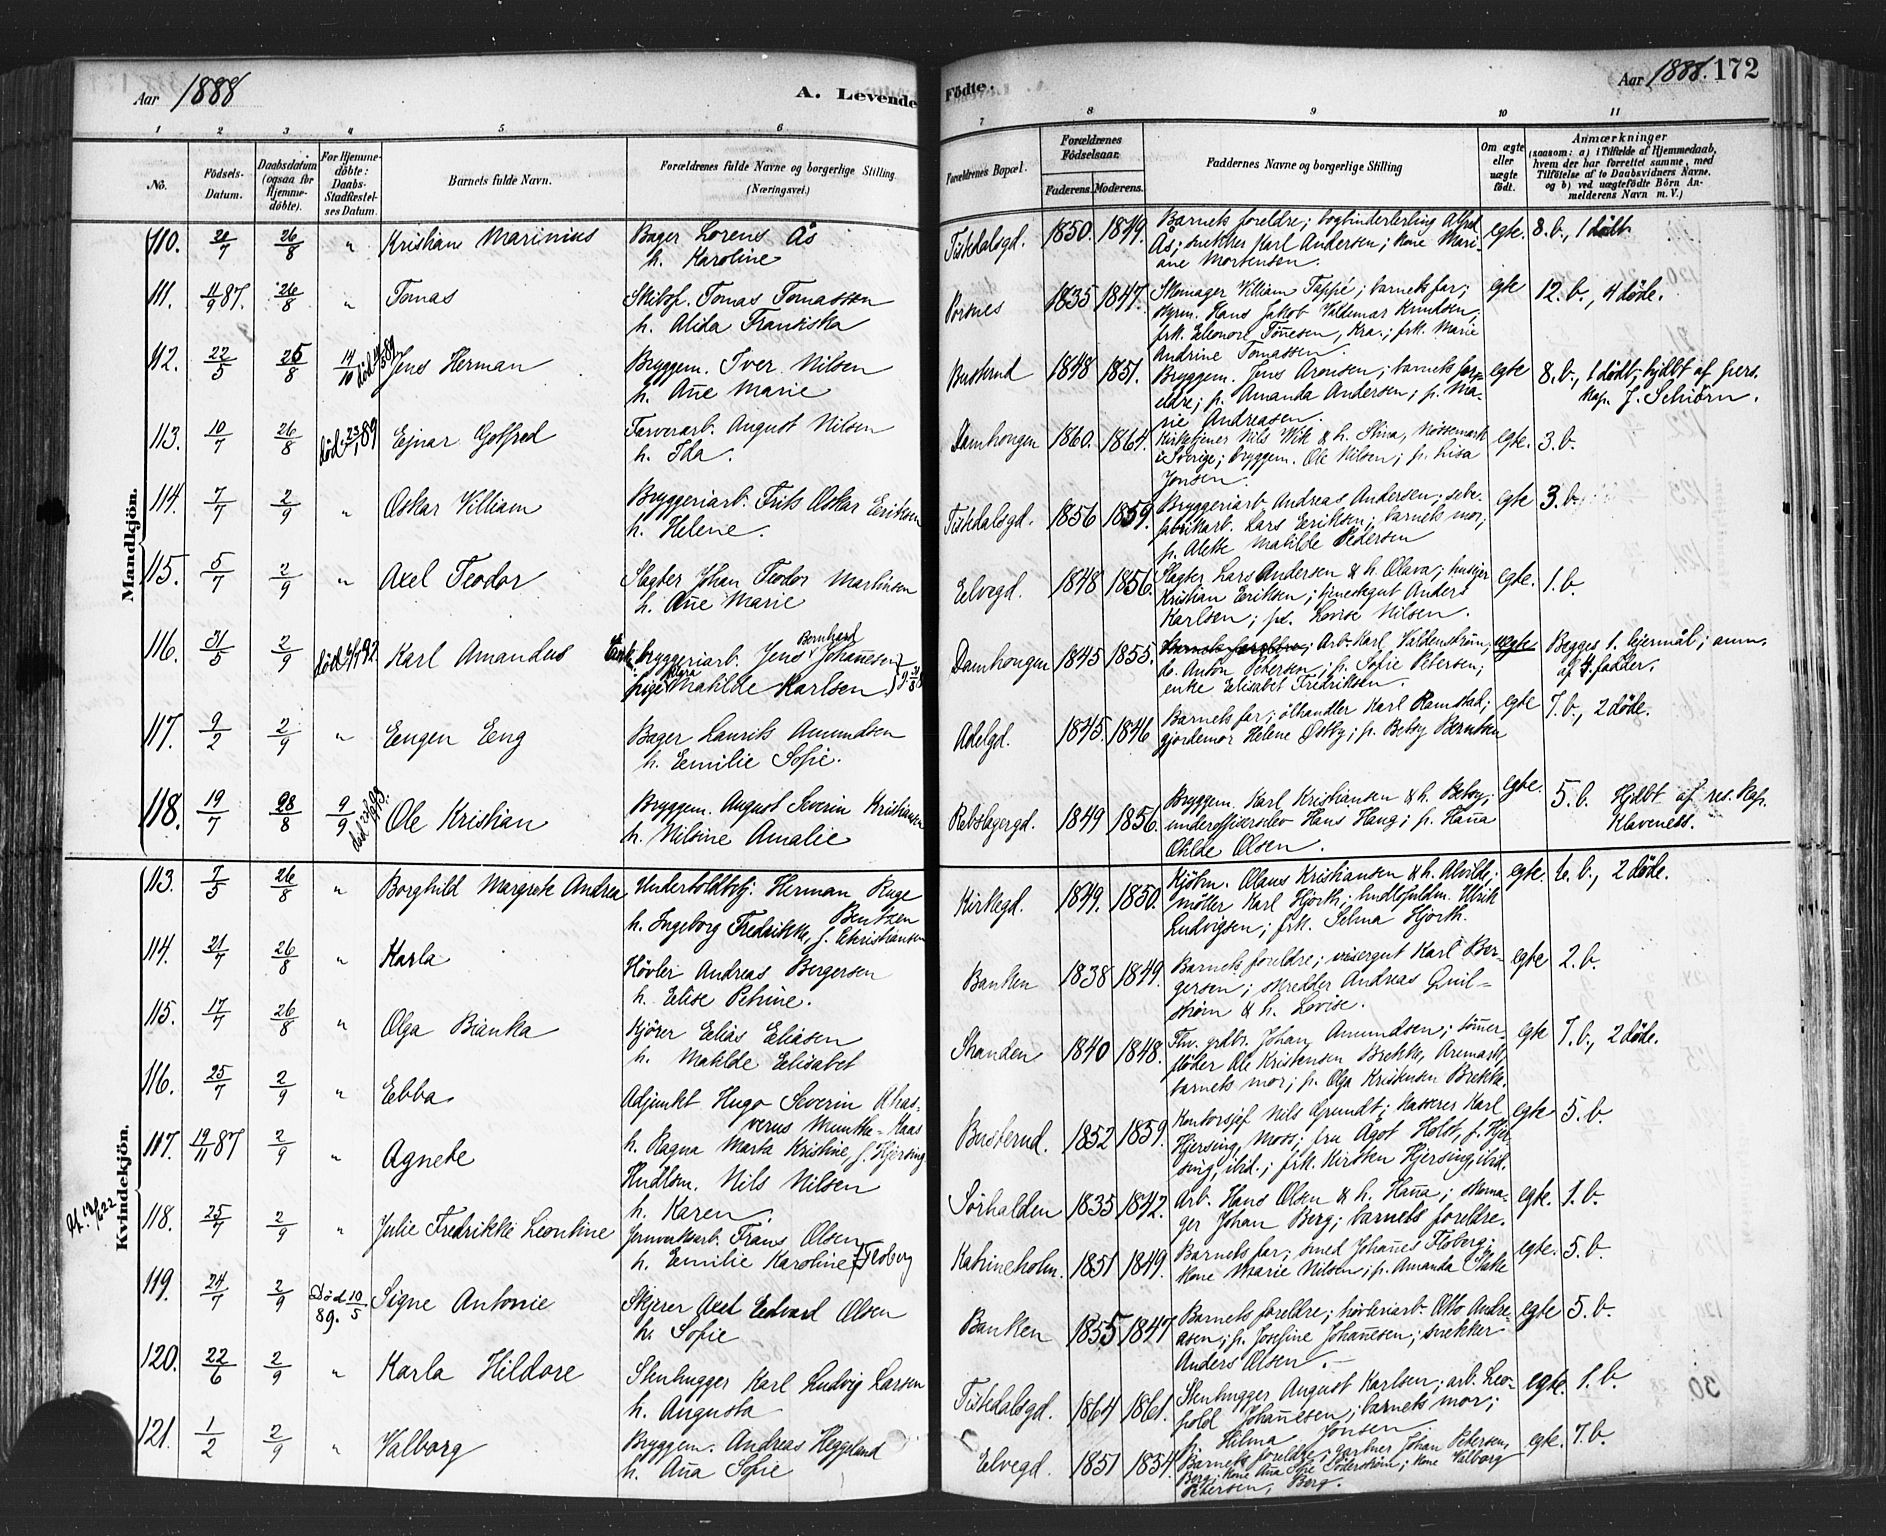 Aar 1888
A. Levende Födte.
Aar 1888. 172
1 2 3 4 5 6 7 8 9 10 11
No.
Födsels-Datum.
Daabsdatum (ogsaa for Hjemme-döbte).
For Hjemme-döbte: Daabs-Stadfæstel-ses Datum.
Barnets fulde Navn.
Forældrenes fulde Navne og borgerlige Stilling (Næringsvei.)
Forældrenes Bopæl.
Forældrenes Födselsaar.
Faderens. Moderens.
Faddernes Navne og borgerlige Stilling
Om ægte eller uægte födt.
Anmærkninger
(saasom: a) i Tilfælde af Hjemmedaab, hvem der har forrettet samme, med Tilföielse af to Daabsvidners Navne, og b) ved uægtefödte Börn An-melderens Navn m. V.)
Mandkjön.
110. 20/7 26/8 " Kristian Marinius
Bager Lorens Ås
h. Karoline
Tistedalsgd. 1850. 1849.
Barnets foreldre; bogbinderlerling Alfred
Ås; snekker Karl Andersen; kone Mari-
ane Mortensen.
egte. 8. b., 1 dødt
111. 11/9 87. 26/8 " Tomas
Skibsf. Tomas Tomassen
h. Alida Fransiska
Porsnes 1835 1847.
Skomager Villiam Tappé; barnets far;
styrm. Hans Jakob Valdemar Knudsen;
frk. Eleonore Tönesen, Kra.; frk. Marie
Andrine Tomassen.
egte 12. b., 4 døde.
112. 22/5 26/8 14/10 Jens Herman
Bryggem. Iver Nilsen
h. Ane Marie
Busterud 1848 1851.
Bryggem. Jens Aronsen; barnets for-
eldre; p. Amanda Andersen; p. Ma-
rie Andreasen.
egte 8. b., 1 dødt; hjdbt af pers.
Kap. J. Schiörn.
113. 10/7 26/8 Ejnar Gotfred
Farverarb. August Nilsen
h. Ida.
Damhougen 1860. 1864.
Kirketjener Nils Wik & h. Stina, Nössemark
i Sverige; bryggem. Ole Nilsen; p. Lisa
Jonsen.
egte. 3. b.
114. 7/7 2/9 " Oskar Villiam
Bryggeriarb. Frits Oskar Eriksen
h. Helene.
Tistedalsgd. 1856 1859.
Bryggeriarb. Andreas Andersen; sebe-
fabrikarb. Lars Eriksen; barnets mor;
p. Alette Matilde Pedersen
egte 3. b.
115. 5/7 2/9 " Axel Teodor
Slagter Johan Teodor Martinsen
h. Ane Marie
Elvegd. 1848 1856.
Slagter Lars Andersen & h. Olava; huskjer
Kristian Eriksen; tjenestegut Anders
Karlsen; p. Lovise Nilsen.
egte. 1. b.
116. 31/5 2/9 Karl Amandus
bryggeriarb. Jens Bernhard Johanesen
pige Matilde Karlsen
Damhougen 1845 1855.
Barnets foreldre; Arb. Karl Valdenström;
do. Anton Petersen; p. Sofie Petersen;
enke Elisabet Fredriksen.
uegte Begges 1. lejermål; anm.
af 4. fadder.
117. 9/2 2/9 " Eugen Eng
Bager Laurits Amundsen
h. Emilie Sofie.
Adelgd. 1845. 1846
Barnets far; ölhandler Karl Ramstad;
gjordemor Helene Östby; p. Betsy Berntsen
egte 7. b., 2 døde.
118. 19/7 28/8 9/9 Ole Kristian
Bryggem. August Severin Kristiansen
h. Nilsine Amalie
Rebslagergd. 1849 1856.
Bryggem. Karl Kristiansen & h. Betsy;
underoffiserselev Hans Haug; p. Hana
Otilde Olsen.
egte. 5. b. Hjdbt af res. Kap.
Klaveness.
Kvindekjön.
113. 7/5 26/8 " Borghild Margrete Andrea
Underholdbetj. Herman Ruge
Bentzen
h. Ingeborg Fredrikke, f. Christiansen
Kirkegd. 1849. 1850.
Kjöbm. Olaus Kristiansen & h. Alvilde;
möller Karl Hjorth; hudlsfuldm. Ulrik
Ludvigsen; frk. Selma Hjorth.
egte. 6. b., 2 døde.
114. 21/7 26/8 " Karla
Hövler Andreas Bergersen
h. Elise Petrine.
Banken 1838 1849.
Barnets foreldre; visergut Karl Ber-
gersen; skredder Andreas Quil-
ström & h. Lovise.
egte 2. b.
115. 17/7 26/8 " Olga Bianka
Kjörer Elias Eliasen
h. Matilde Elisabet
Stranden 1840 1848.
Fhv. grdbr. Johan Amundsen; tömer-
flöder Ole Kristensen Brekke, Aremark;
barnets mor; p. Olga Kristensen Brekke.
egte 7. b., 2 døde.
116. 25/7 2/9 " Ebba
Adjunkt Hugo Severin Ahas-
verus Munthe-Kaas
h. Ragna Marta Kristine, f. Hjersing
Busterud. 1852 1859.
Kontorsjef Nils Grundt; kasserer Karl
Hjersing, Moss; fru Ågot Holst, f. Hjer-
sing, ibid.; frk. Kirsten Hjersing, ibid.
egte 5. b.
117. 19/11 87 2/9 " Agnete
Hudlsm. Nils Nilsen
h. Karen.
Sörhalden 1835 1842.
Arb. Hans Olsen & h. Hana; skoma-
ger Johan Berg; barnets foreldre.
egte. 1. b.
118. 25/7 2/9 " Julie Fredrikke Leontine
Jernverksarb. Frans Olsen
h. Emilie Karoline f. Floberg
Katrineholm. 1851 1849.
Barnets far; smed Johanes Floberg;
kone Marie Nilsen; p. Amanda
egte. 5. b.
119. 24/7 2/9 Död 10/5 89. Signe Antonie
Skjerer Axel Edvard Olsen
h. Sofie
Banken 1855 1847
Barnets foreldre; hövleriarb. Otto Andre-
asen; p. Josefine Johanesen; snekker
Anders Olsen.
egte 5. b.
120. 22/6 2/9 " Karla Hildore
Stenhugger Karl Ludvig Larsen
h. Augusta
Tistedalsgd. 1864 1861.
Stenhugger August Karlsen; arb. Leo-
pold Johanesen; barnets mor;
p. Hilma Jonsen
egte. 1. b.
121. 1/2 2/9 " Valborg
Bryggem. Andreas Heggeland
h. Ana Sofie
Elvegd. 1851 1854.
Barnets foreldre; gartner Johan Petersen,
Berg; kone Ana Sofie Söderström; kone Valborg
Petersen, Berg.
egte. 7. b.